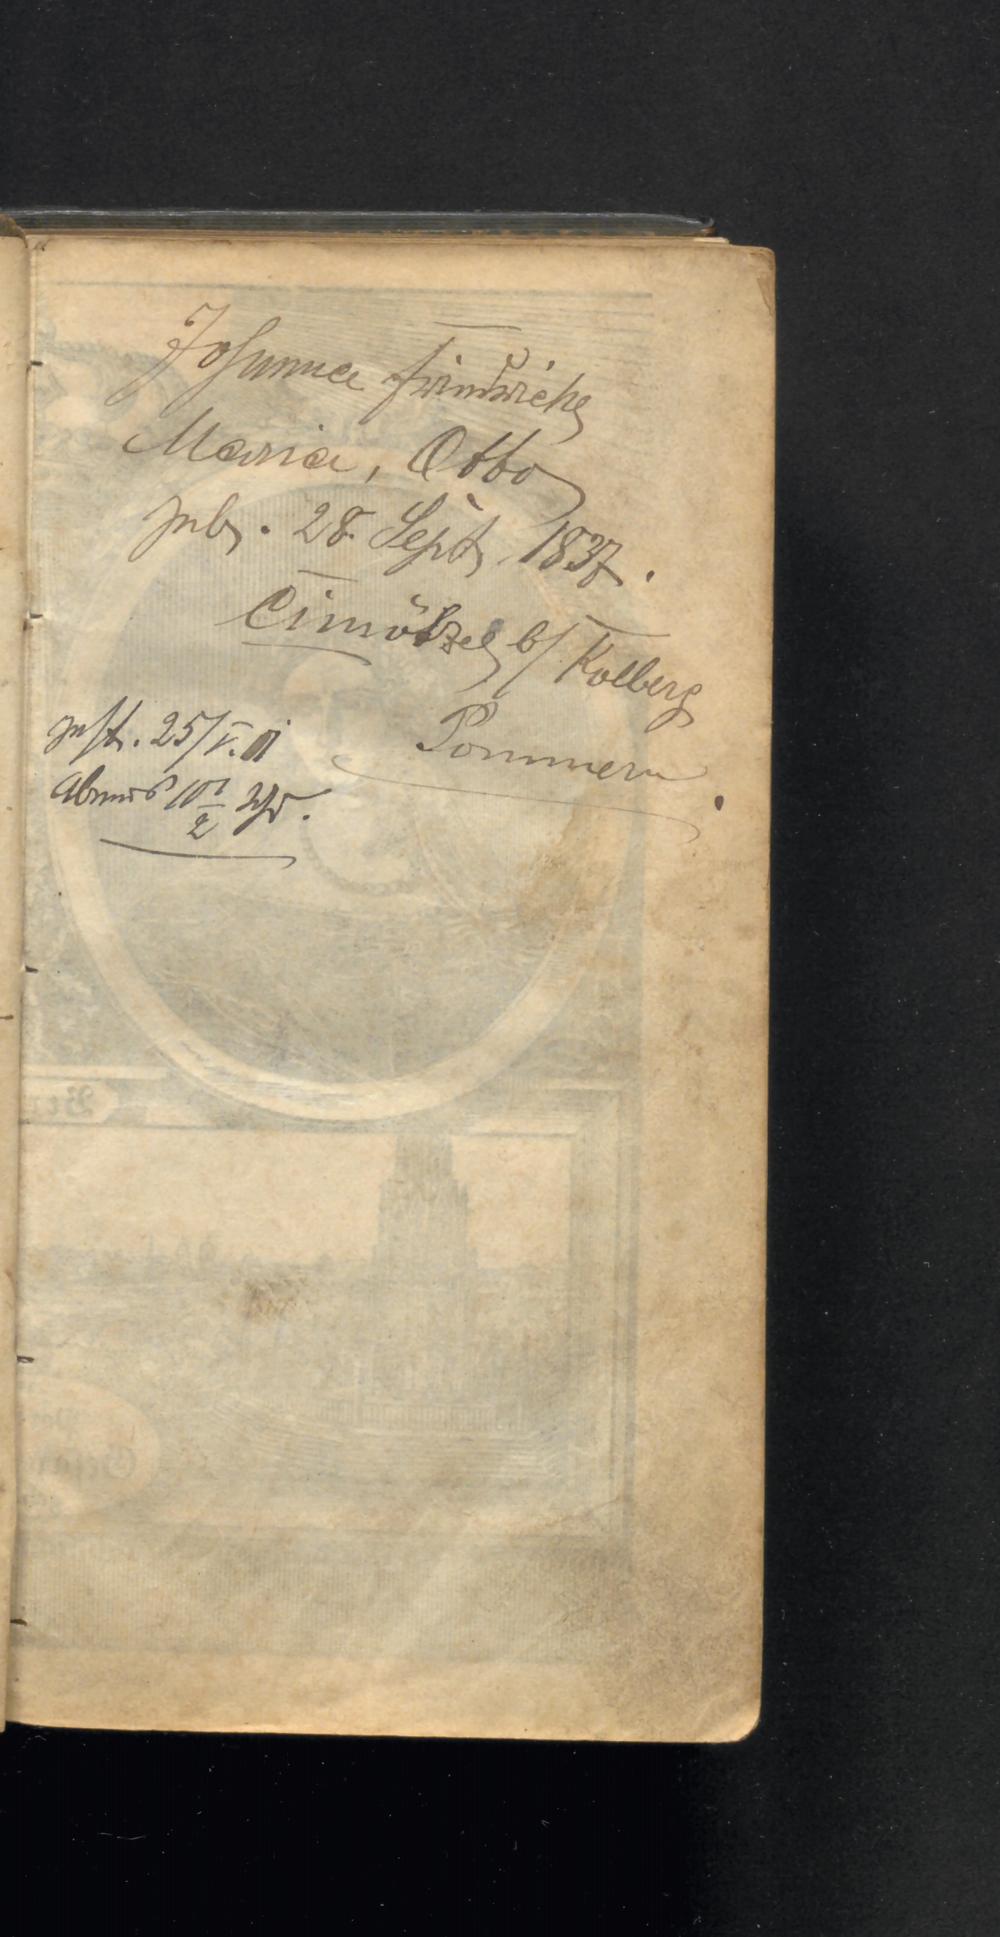 Johanna Friedricke
Maria, Otto
geb. 28. Sept. 1837.
b/ Kolberg
Pommern
gest. 25/V.
Abends 10 1/2 Uhr.